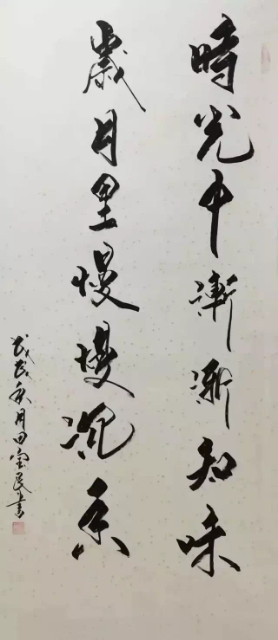 時光中漸漸知味
歲月里慢慢沉香
戊戌秋月田宝民書